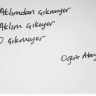 Aklımdan çıkmıyor
Aklım çıkıyor
O çıkmıyor
Oğuz Atay